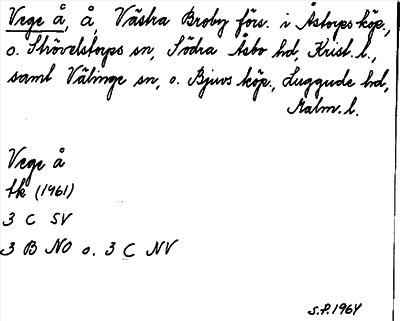 Vege å, å, Västra Broby förs. i Åstorps köp.,
o. Stövelstorps sn, Södra Åsbo hd, Krist. l.,
samt Välinge sn, o. Bjuvs köp., Luggude hd,
Malm. l.
Vege å
tk (1961)
3 C SV
3 B NO o. 3 C NV
S.P. 1964